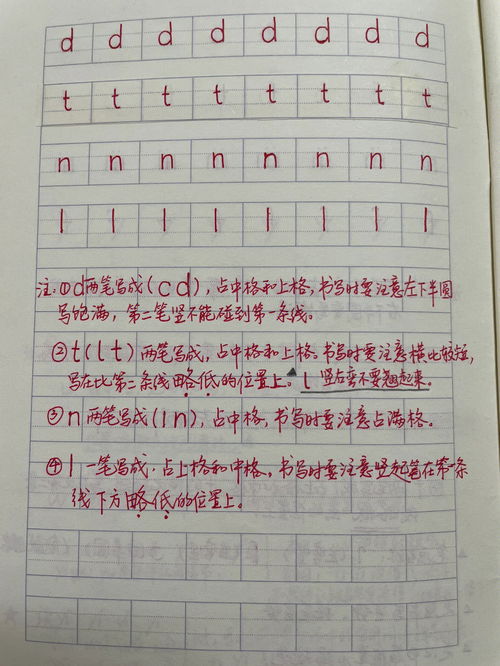 d d d d d d d d
t t t t t t t t
n n n n n n n n
l l l l l l l l
注:①d两笔写成(c d),占中格和上格,书写时要注意左下半圆
写饱满,第二笔竖不能碰到第一条线。
②t(l t)两笔写成,占中格和上格。书写时要注意横比较短,
写在比第二条线略低的位置上。▲l 竖右弯不要翘起来。
③n两笔写成(l n),占中格,书写时要注意占满格。
④l一笔写成.占上格和中格。书写时要注意竖起笔在第一条
线下方略低的位置上。